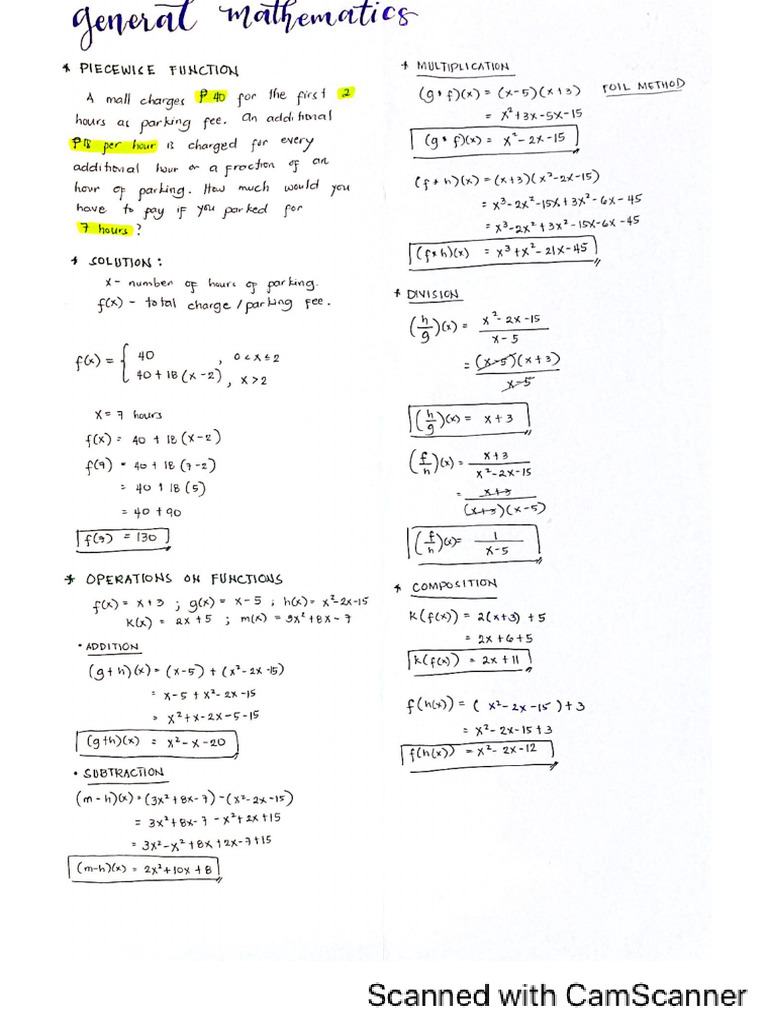 general mathematics
* PIECEWISE FUNCTION
A mall charges ₱40 for the first 2
hours as parking fee. An additional
₱18 per hour is charged for every
additional hour or a fraction of an
hour of parking. How much would you
have to pay if you parked for
7 hours?
* SOLUTION:
x - number of hours of parking.
f(x) - total charge / parking fee.
f(x) = { 40 , 0 < x ≤ 2
40 + 18 (x - 2) , x > 2
x = 7 hours
f(x) = 40 + 18 (x-2)
f(7) = 40 + 18 (7-2)
= 40 + 18 (5)
= 40 + 90
f(7) = 130
* OPERATIONS ON FUNCTIONS
f(x) = x+3 ; g(x) = x-5 ; h(x) = x²-2x-15
k(x) = 2x+5 ; m(x) = 3x²+8x-7
• ADDITION
(g+h)(x) = (x-5) + (x²-2x-15)
= x-5 + x²-2x-15
= x²+x-2x-5-15
(g+h)(x) = x²-x-20
• SUBTRACTION
(m-h)(x) = (3x²+8x-7) - (x²-2x-15)
= 3x²+8x-7 - x²+2x+15
= 3x²-x²+8x+2x-7+15
(m-h)(x) = 2x²+10x+8
* MULTIPLICATION
(g • f)(x) = (x-5)(x+3) FOIL METHOD
= x²+3x-5x-15
(g • f)(x) = x²-2x-15
(f * h)(x) = (x+3)(x²-2x-15)
= x³-2x²-15x+3x²-6x-45
= x³-2x²+3x²-15x-6x-45
(f*h)(x) = x³+x²-21x-45
* DIVISION
(h/g)(x) = x²-2x-15 / x-5
= (x-5)(x+3) / x-5
(h/g)(x) = x+3
(f/h)(x) = x+3 / x²-2x-15
= x+3 / (x+3)(x-5)
(f/h)(x) = 1 / x-5
* COMPOSITION
k(f(x)) = 2(x+3) + 5
= 2x+6+5
k(f(x)) = 2x+11
f(h(x)) = (x²-2x-15)+3
= x²-2x-15+3
f(h(x)) = x²-2x-12
Scanned with CamScanner